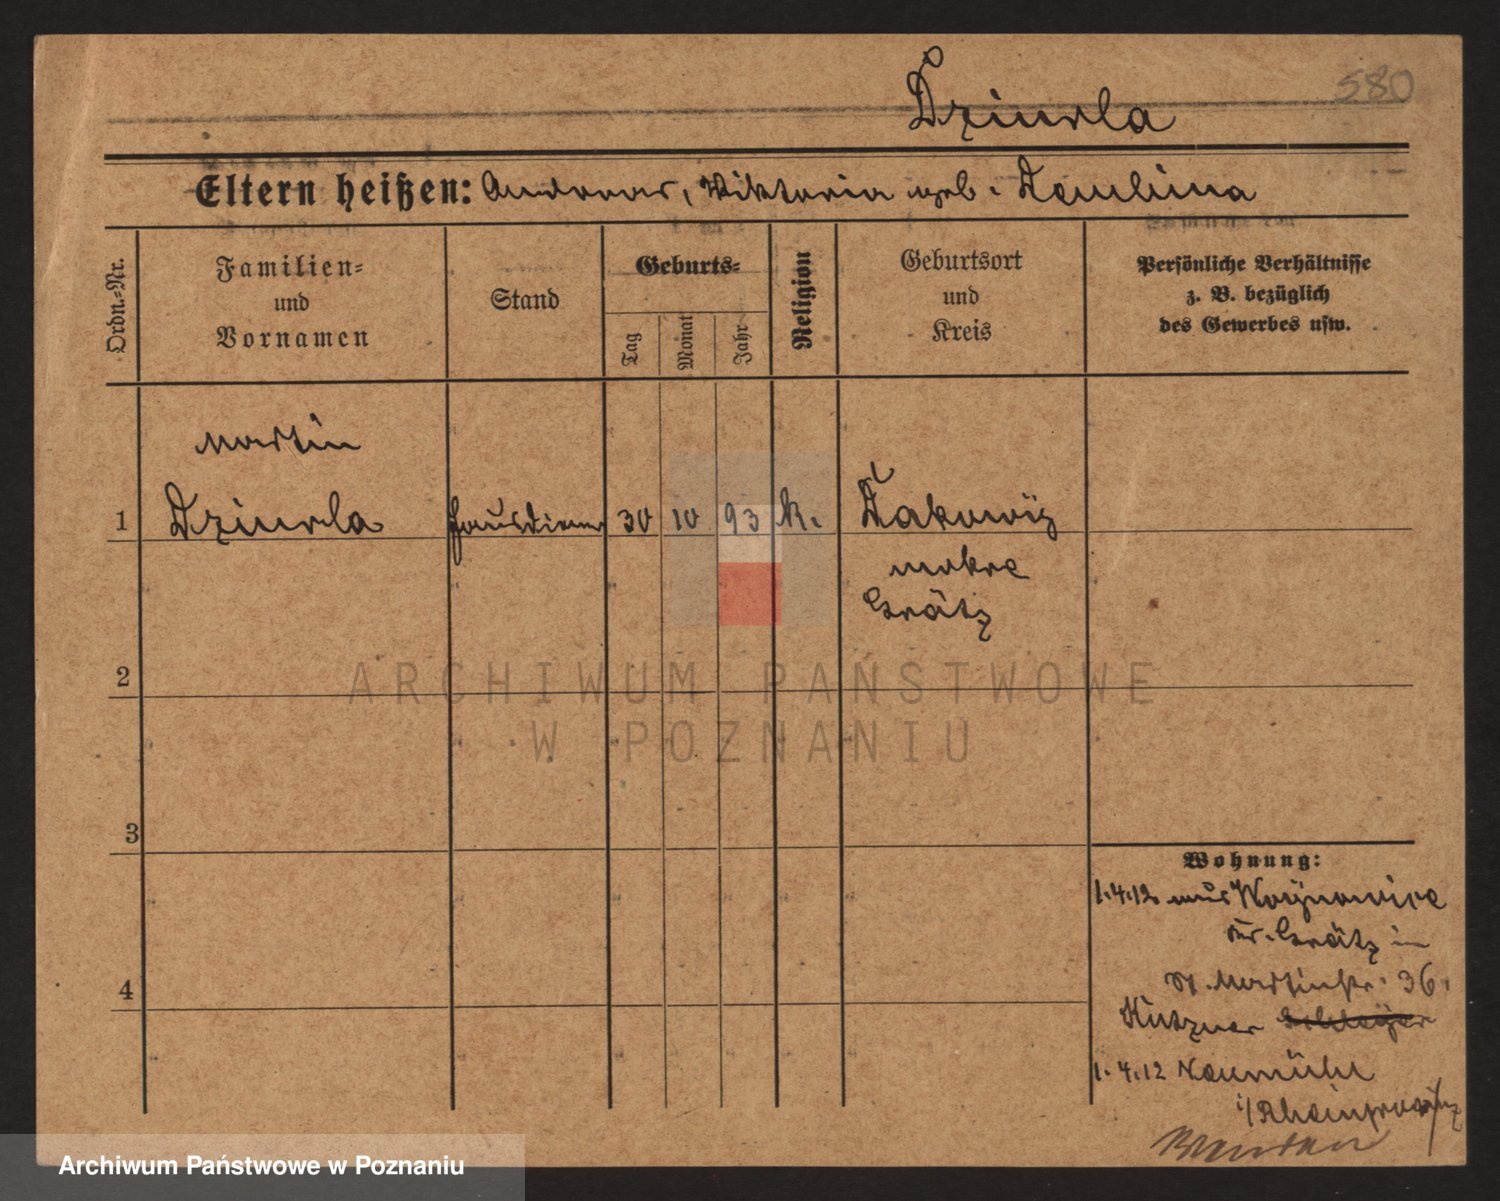 580
Dziurla
Eltern heißen: Andreas, Viktoria geb. Dembina
Ordn.=Nr.
Familien=
und
Vornamen
Stand
Geburts=
Tag
Monat
Jahr
Religion
Geburtsort
und
Kreis
Persönliche Verhältnisse
z. B. bezüglich
des Gewerbes usw.
Martin
1 Dziurla Hausdiener 30 10 93 k.
mokre
Grätz
2
3
4
Wohnung:
1.4.12. aus Woynowice
Kr. Grätz in
St. Martinstr. 36.
Kutzner
1.4.12 Neumühl
i/Rheinprovinz
ARCHIWUM PAŃSTWOWE
W POZNANIU
Archiwum Państwowe w Poznaniu